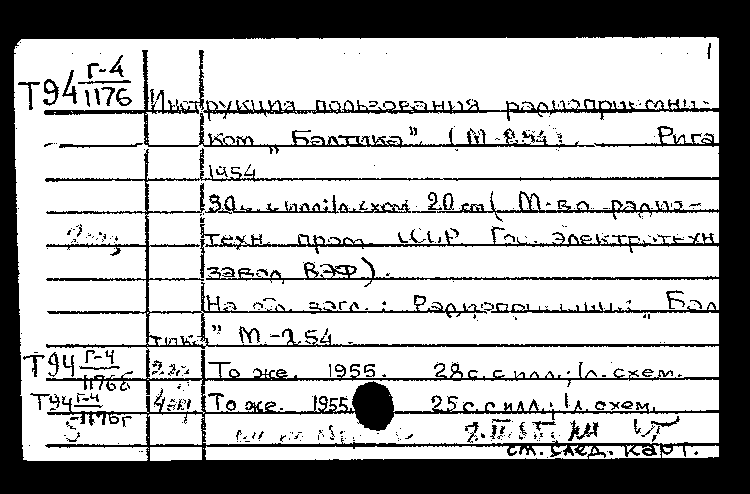 1
Т94 Г-4/1176 Инструкция пользования радиоприемни-
ком „Балтика" (М-254). Рига
1954
30с. с илл.; 1л. схем 20 см ( М-во радио-
2 экз техн. пром. СССР Гос. электротехн
завод ВЭФ).
На обл. загл.: Радиоприемник „Бал
тика" М-254.
Т94 Г-4/1176б 2 экз То же. 1955. 28с. с илл.; 1л. схем.
Т94 Г-4/1176г 4 экз. То же. 1955. 25с. с илл.; 1л. схем.
см. след. карт.